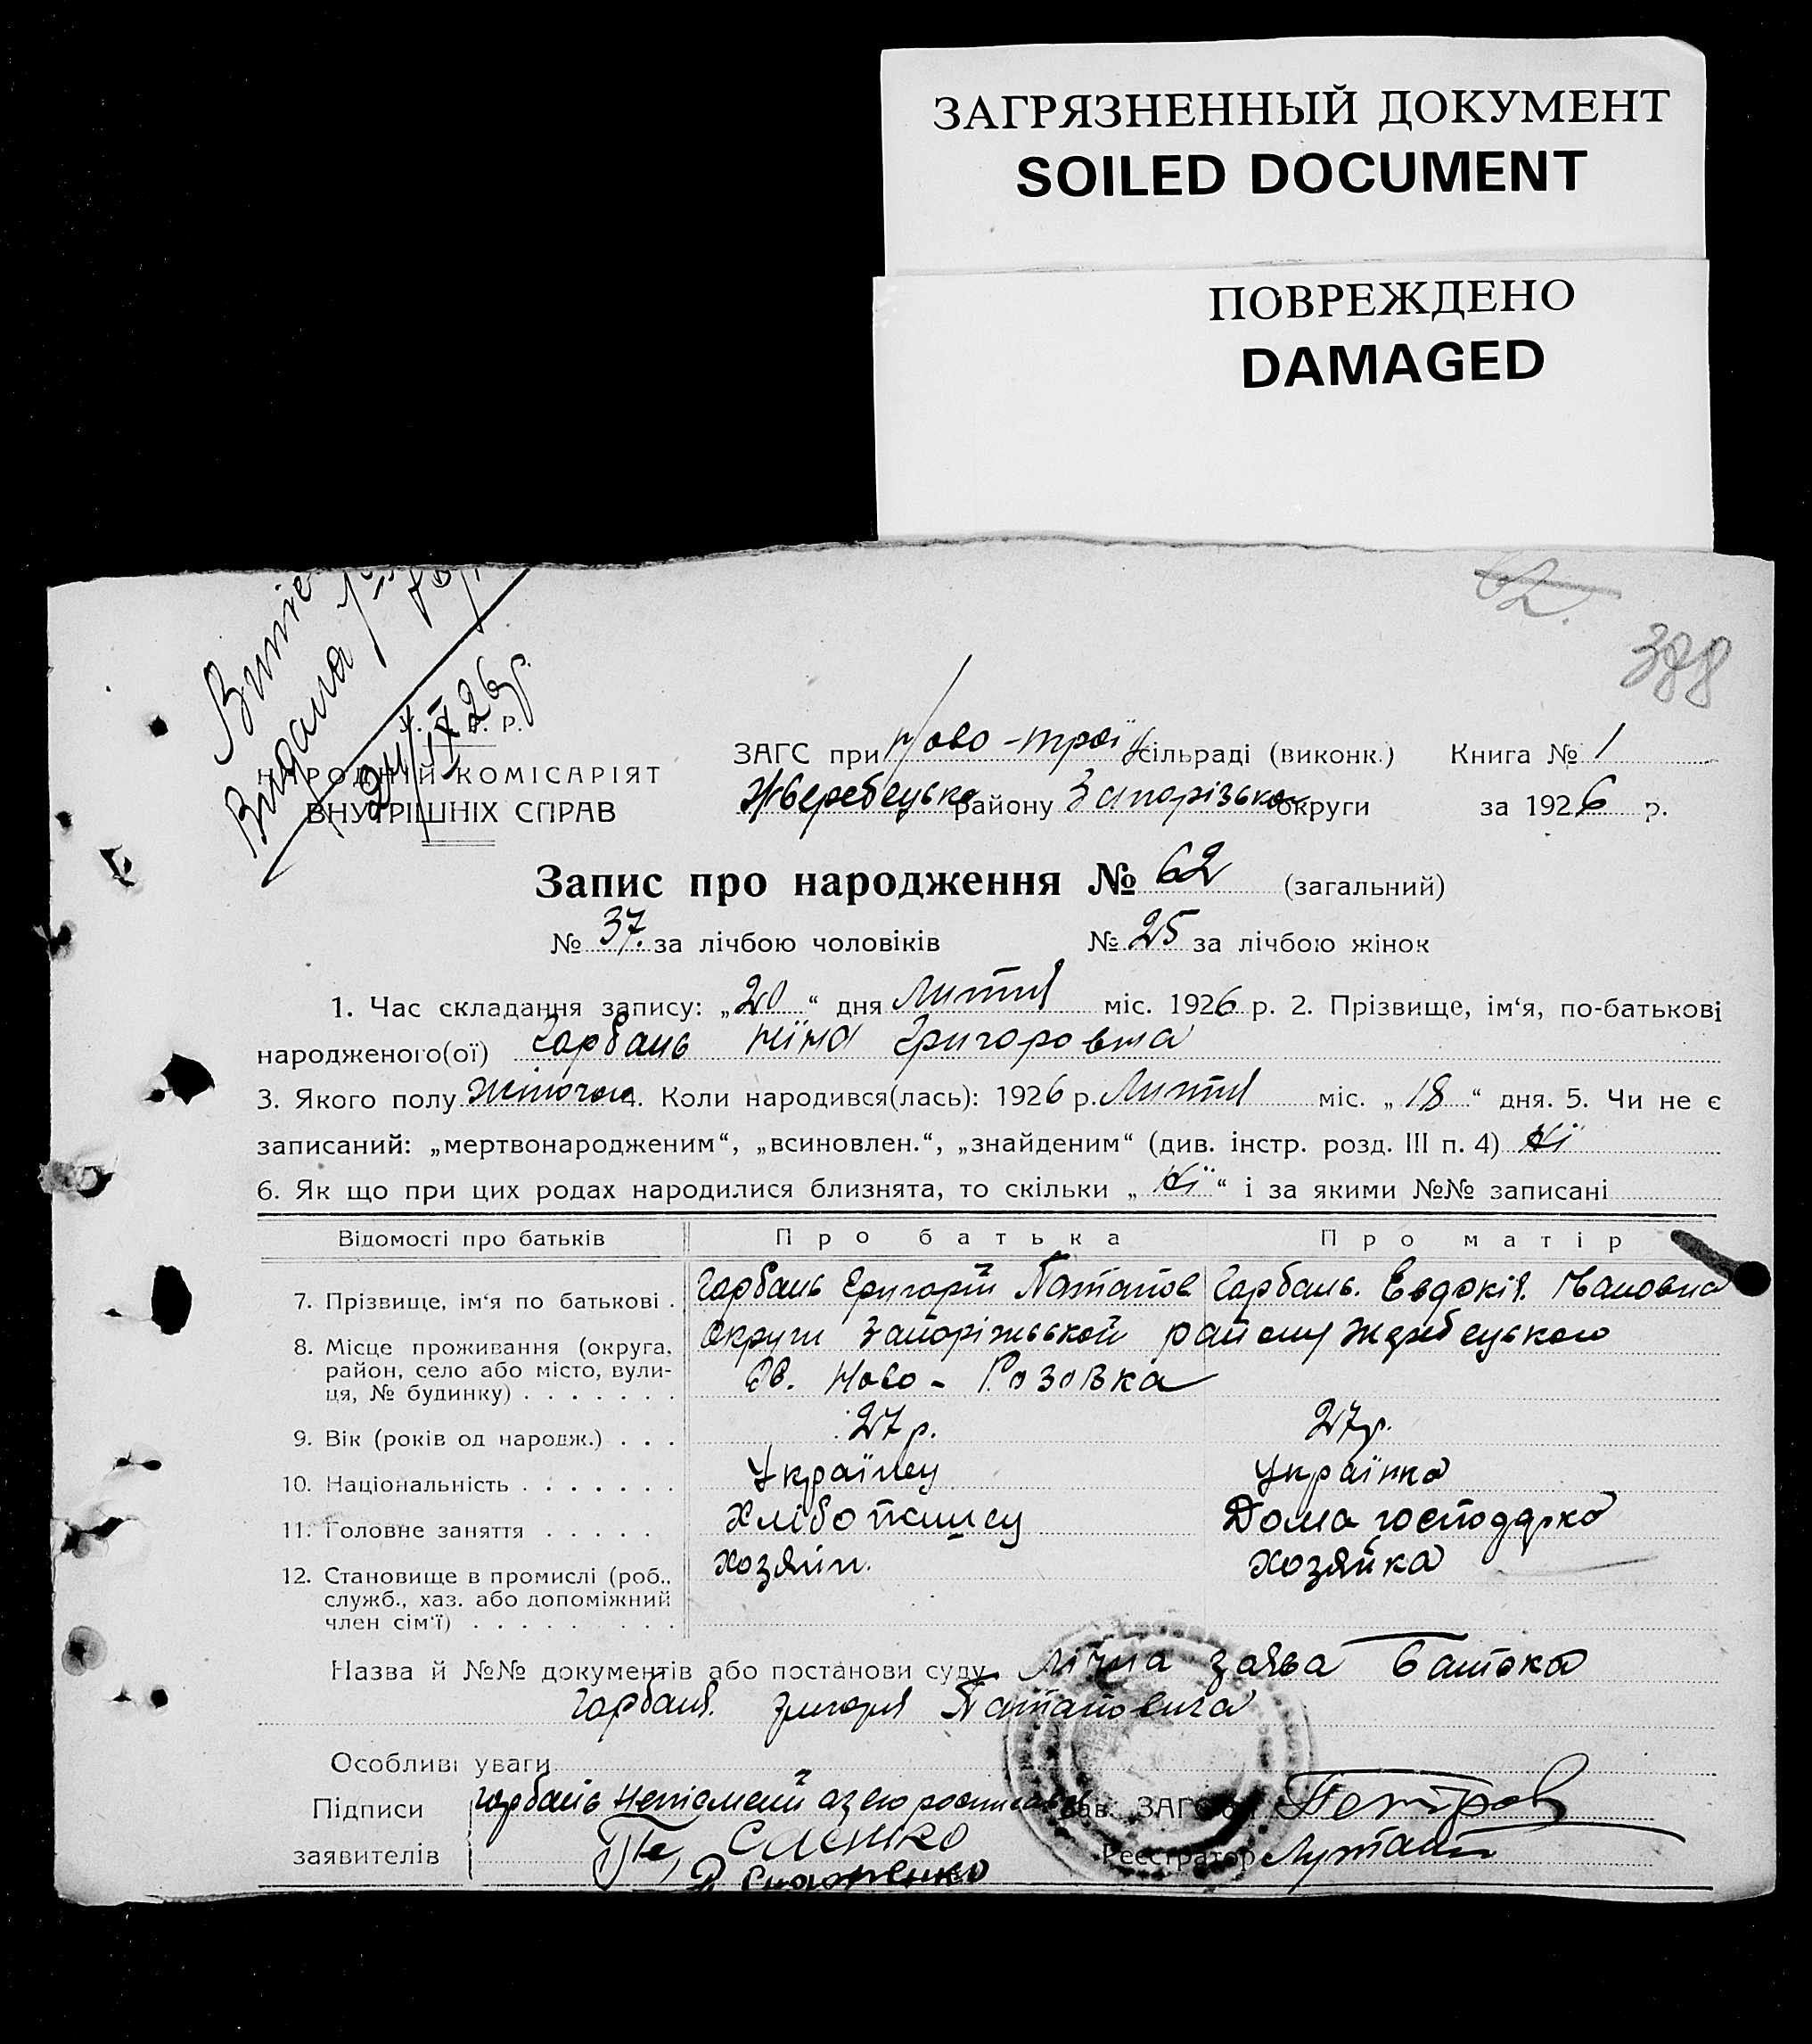 ЗАГРЯЗНЕННЫЙ ДОКУМЕНТ
SOILED DOCUMENT
ПОВРЕЖДЕНО
DAMAGED
62.
388
Видана
24/IX 26р.
У. С. Р. Р.
НАРОДНІЙ КОМІСАРІЯТ
ВНУТРІШНІХ СПРАВ
ЗАГС при Ново-Трої сільраді (виконк.) Книга № 1
Жеребецько району Запорізько округи за 1926 р.
Запис про народження № 62 (загальний)
№ 37. за лічбою чоловіків № 25 за лічбою жінок
1. Час складання запису: „20“ дня Лютня міс. 1926 р. 2. Прізвище, ім‘я, по-батькові
народженого(ої) Горбань Ніна Григоровна
3. Якого полу Жіночого 4. Коли народився(лась): 1926 р. Лютня міс. „18“ дня. 5. Чи не є
записаний: „мертвонародженим“, „всиновлен.“, „знайденим“ (див. інстр. розд. III п. 4) Ні
6. Як що при цих родах народилися близнята, то скільки „Ні“ і за якими №№ записані
Відомості про батьків Про батька Про матір
7. Прізвище, ім‘я по батькові . Горбань Григорій Потапов Горбань. Евдокія. Івановна
8. Місце проживання (округа, район, село або місто, вулиця, № будинку) . . . . . . . Округи Запоріжської району Жеребецького
Ново-Розовка
9. Вік (років од народж.) . . . 27 р. 27 р.
10. Національність . . . . . . . Українец Українка
11. Головне заняття . . . . . Хлібопашец Дома господарка
12. Становище в промислі (роб., служб., хаз. або допоміжний член сім‘ї) . . . . . . . . . Хозяїн. Хозяйка
Назва й №№ документів або постанови суду Лічна заява батька
Горбаня. Григорія Потаповича
Особливі уваги
Підписи Горбань Неписмений за его росписався Зав. ЗАГС‘ом Петров
заявителів Саєнко Реєстратор